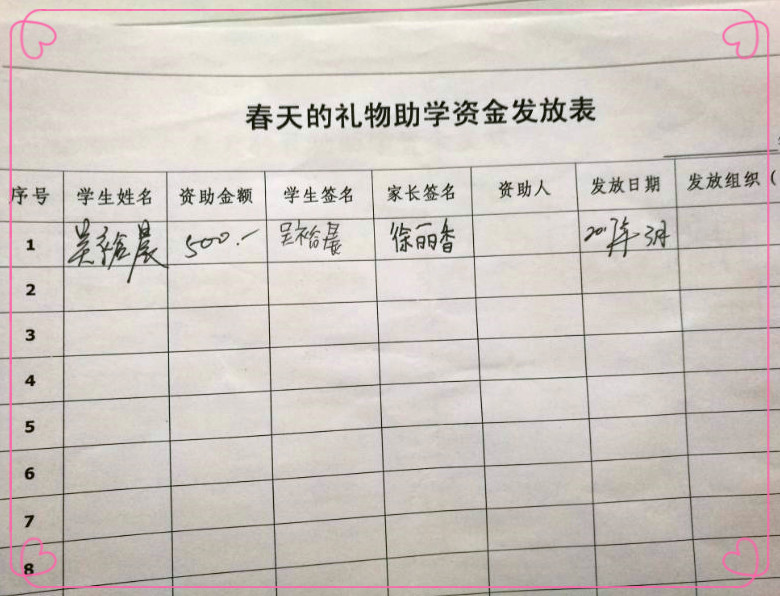 春天的礼物助学资金发放表
序号 学生姓名 资助金额 学生签名 家长签名 资助人 发放日期 发放组织（
1 吴裕晨 500.— 吴裕晨 徐丽香 2017年3月
2
3
4
5
6
7
8